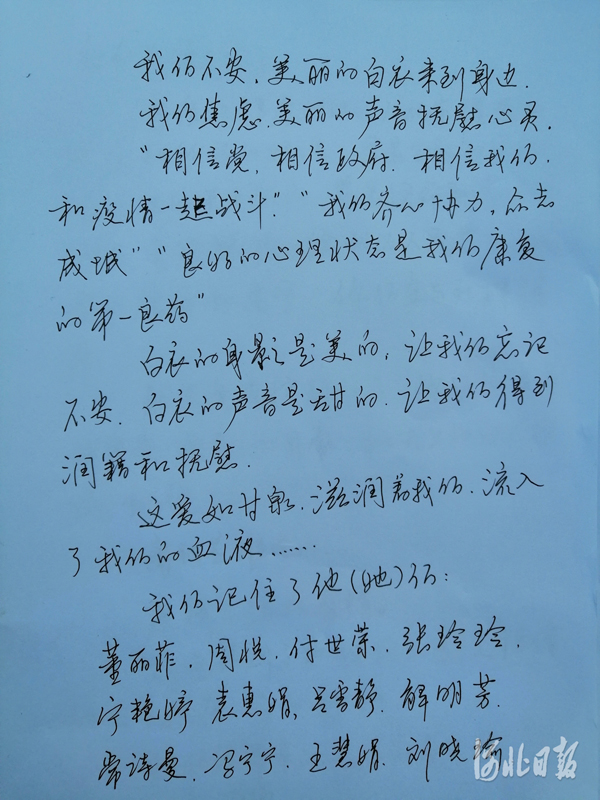 我们不安，美丽的白衣来到身边.
我们焦虑.美丽的声音抚慰心灵.
“相信党，相信政府. 相信我们.
和疫情一起战斗.”“我们齐心协力，众志
成城”“良好的心理状态是我们康复
的第一良药”
白衣的身影是美的，让我们忘记
不安. 白衣的声音是甜的. 让我们得到
润籍和抚慰.
这爱如甘泉.滋润着我们.流入
了我们的血液……
我们记住了他(她)们:
董丽菲，周悦.付世荣，张玲玲，
宁艳婷 袁惠娟，吕雪静. 解明芳.
常诗曼，冯宁宁，王慧娟，刘晓瑜
河北日报